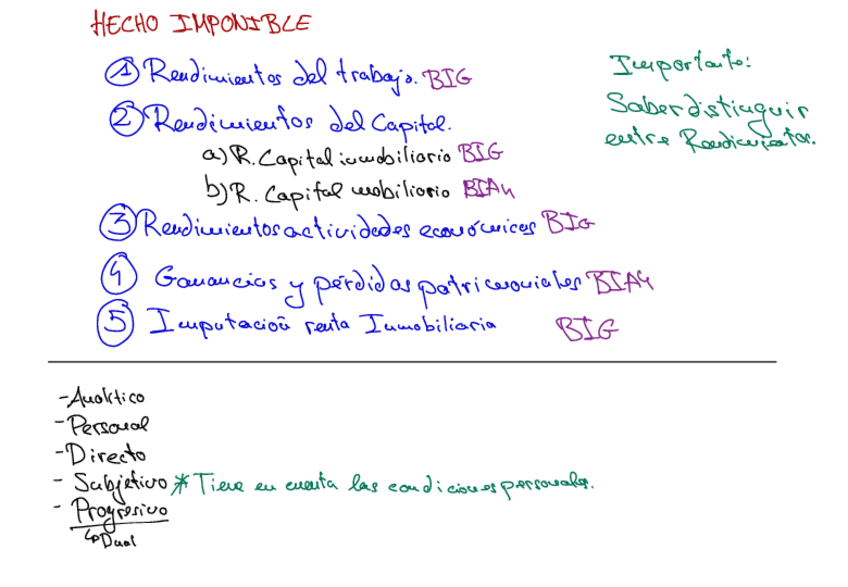 HECHO IMPONIBLE
① Rendimientos del trabajo. BIG
② Rendimientos del Capital.
a) R. Capital inmobiliario BIG
b) R. Capital mobiliario BIAH
③ Rendimientos actividades económicas BIG
④ Ganancias y pérdidas patrimoniales BIAH
⑤ Imputación renta Inmobiliaria BIG
Importante:
Saber distinguir
entre Rendimientos.
- Analítico
- Personal
- Directo
- Subjetivo * Tiene en cuenta las condiciones personales.
- Progresivo
↳ Dual